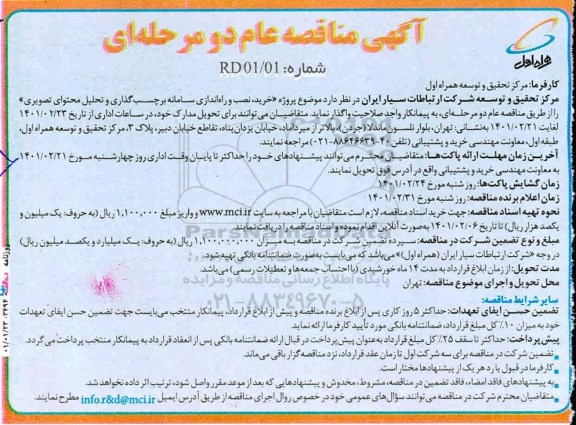 آگهی مناقصه عام دو مرحله‌ای
شماره: RD 01/01
همراه اول
کارفرما: مرکز تحقیق و توسعه همراه اول
مرکز تحقیق و توسعه شرکت ارتباطات سیار ایران در نظر دارد موضوع پروژه «خرید، نصب و راه‌اندازی سامانه برچسب‌گذاری و تحلیل محتوای تصویری»
را از طریق مناقصه عام دو مرحله‌ای، به پیمانکار واجد صلاحیت واگذار نماید. متقاضیان می‌توانند برای تحویل مدارک خود، در ساعات اداری از تاریخ ۱۴۰۱/۰۲/۲۳
لغایت ۱۴۰۱/۰۲/۲۱ به نشانی: تهران، بلوار نلسون ماندلا (جردن)، بالاتر از میرداماد، خیابان یزدان‌پناه، تقاطع خیابان دبیر، پلاک ۲، مرکز تحقیق و توسعه همراه اول،
طبقه اول، معاونت مهندسی خرید و پشتیبانی (تلفن ۴۰-۸۸۶۴۶۶۳۹-۰۲۱) مراجعه نمایند.
آخرین زمان مهلت ارائه پاکت‌ها: متقاضیان محترم می‌توانند پیشنهادهای خود را حداکثر تا پایان وقت اداری روز چهارشنبه مورخ ۱۴۰۱/۰۲/۲۱
به معاونت مهندسی خرید و پشتیبانی واقع در آدرس فوق تحویل نمایند.
زمان گشایش پاکت‌ها: روز شنبه مورخ ۱۴۰۱/۰۲/۲۴
زمان اعلام برنده مناقصه: روز شنبه مورخ ۱۴۰۱/۰۲/۳۱
نحوه تهیه اسناد مناقصه: جهت خرید اسناد مناقصه، لازم است متقاضیان با مراجعه به سایت www.mci.ir و واریز مبلغ ۱,۱۰۰,۰۰۰ ریال (به حروف: یک میلیون و
یکصد هزار ریال) تا تاریخ ۱۴۰۱/۰۲/۰۶ به‌صورت آنلاین اقدام نموده و اسناد مناقصه را دریافت نمایند.
مبلغ و نوع تضمین شرکت در مناقصه: سپرده تضمین شرکت در مناقصه به میزان ۱,۱۰۰,۰۰۰,۰۰۰ ریال (به حروف: یک میلیارد و یکصد میلیون ریال)
در وجه «شرکت ارتباطات سیار ایران (همراه اول)» می‌باشد که می‌بایست به‌صورت ضمانتنامه بانکی تهیه شود.
مدت تحویل: از زمان ابلاغ قرارداد به مدت ۱۴ ماه خورشیدی (با احتساب جمعه‌ها و تعطیلات رسمی) می‌باشد.
محل تحویل و اجرای موضوع مناقصه: تهران
سایر شرایط مناقصه:
تضمین حسن ایفای تعهدات: حداکثر ۵ روز کاری پس از ابلاغ برنده مناقصه و پیش از ابلاغ قرارداد، پیمانکار منتخب می‌بایست جهت تضمین حسن ایفای تعهدات
خود به میزان ۱۰٪ کل مبلغ قرارداد، ضمانتنامه بانکی مورد تأیید کارفرما ارائه نماید.
پیش‌پرداخت: حداکثر تا سقف ۲۵٪ کل مبلغ قرارداد به‌عنوان پیش‌پرداخت در قبال ارائه ضمانتنامه بانکی پس از انعقاد قرارداد به پیمانکار منتخب پرداخت می‌گردد.
تضمین شرکت در مناقصه برای سه شرکت اول تا زمان عقد قرارداد، نزد مناقصه‌گزار باقی می‌ماند.
کارفرما در قبول یا رد هر یک از پیشنهادها مختار است.
به پیشنهادهای فاقد امضاء، فاقد تضمین در مناقصه، مشروط، مخدوش و پیشنهادهایی که بعد از موعد مقرر واصل شود، ترتیب اثر داده نخواهد شد.
متقاضیان محترم شرکت در مناقصه می‌توانند سؤال‌های عمومی خود در خصوص روال اجرای مناقصه از طریق آدرس ایمیل info.r&d@mci.ir مطرح نمایند.
پایگاه اطلاع رسانی مناقصه و مزایده
۰۲۱-۸۸۳۴۹۶۷۰-۵